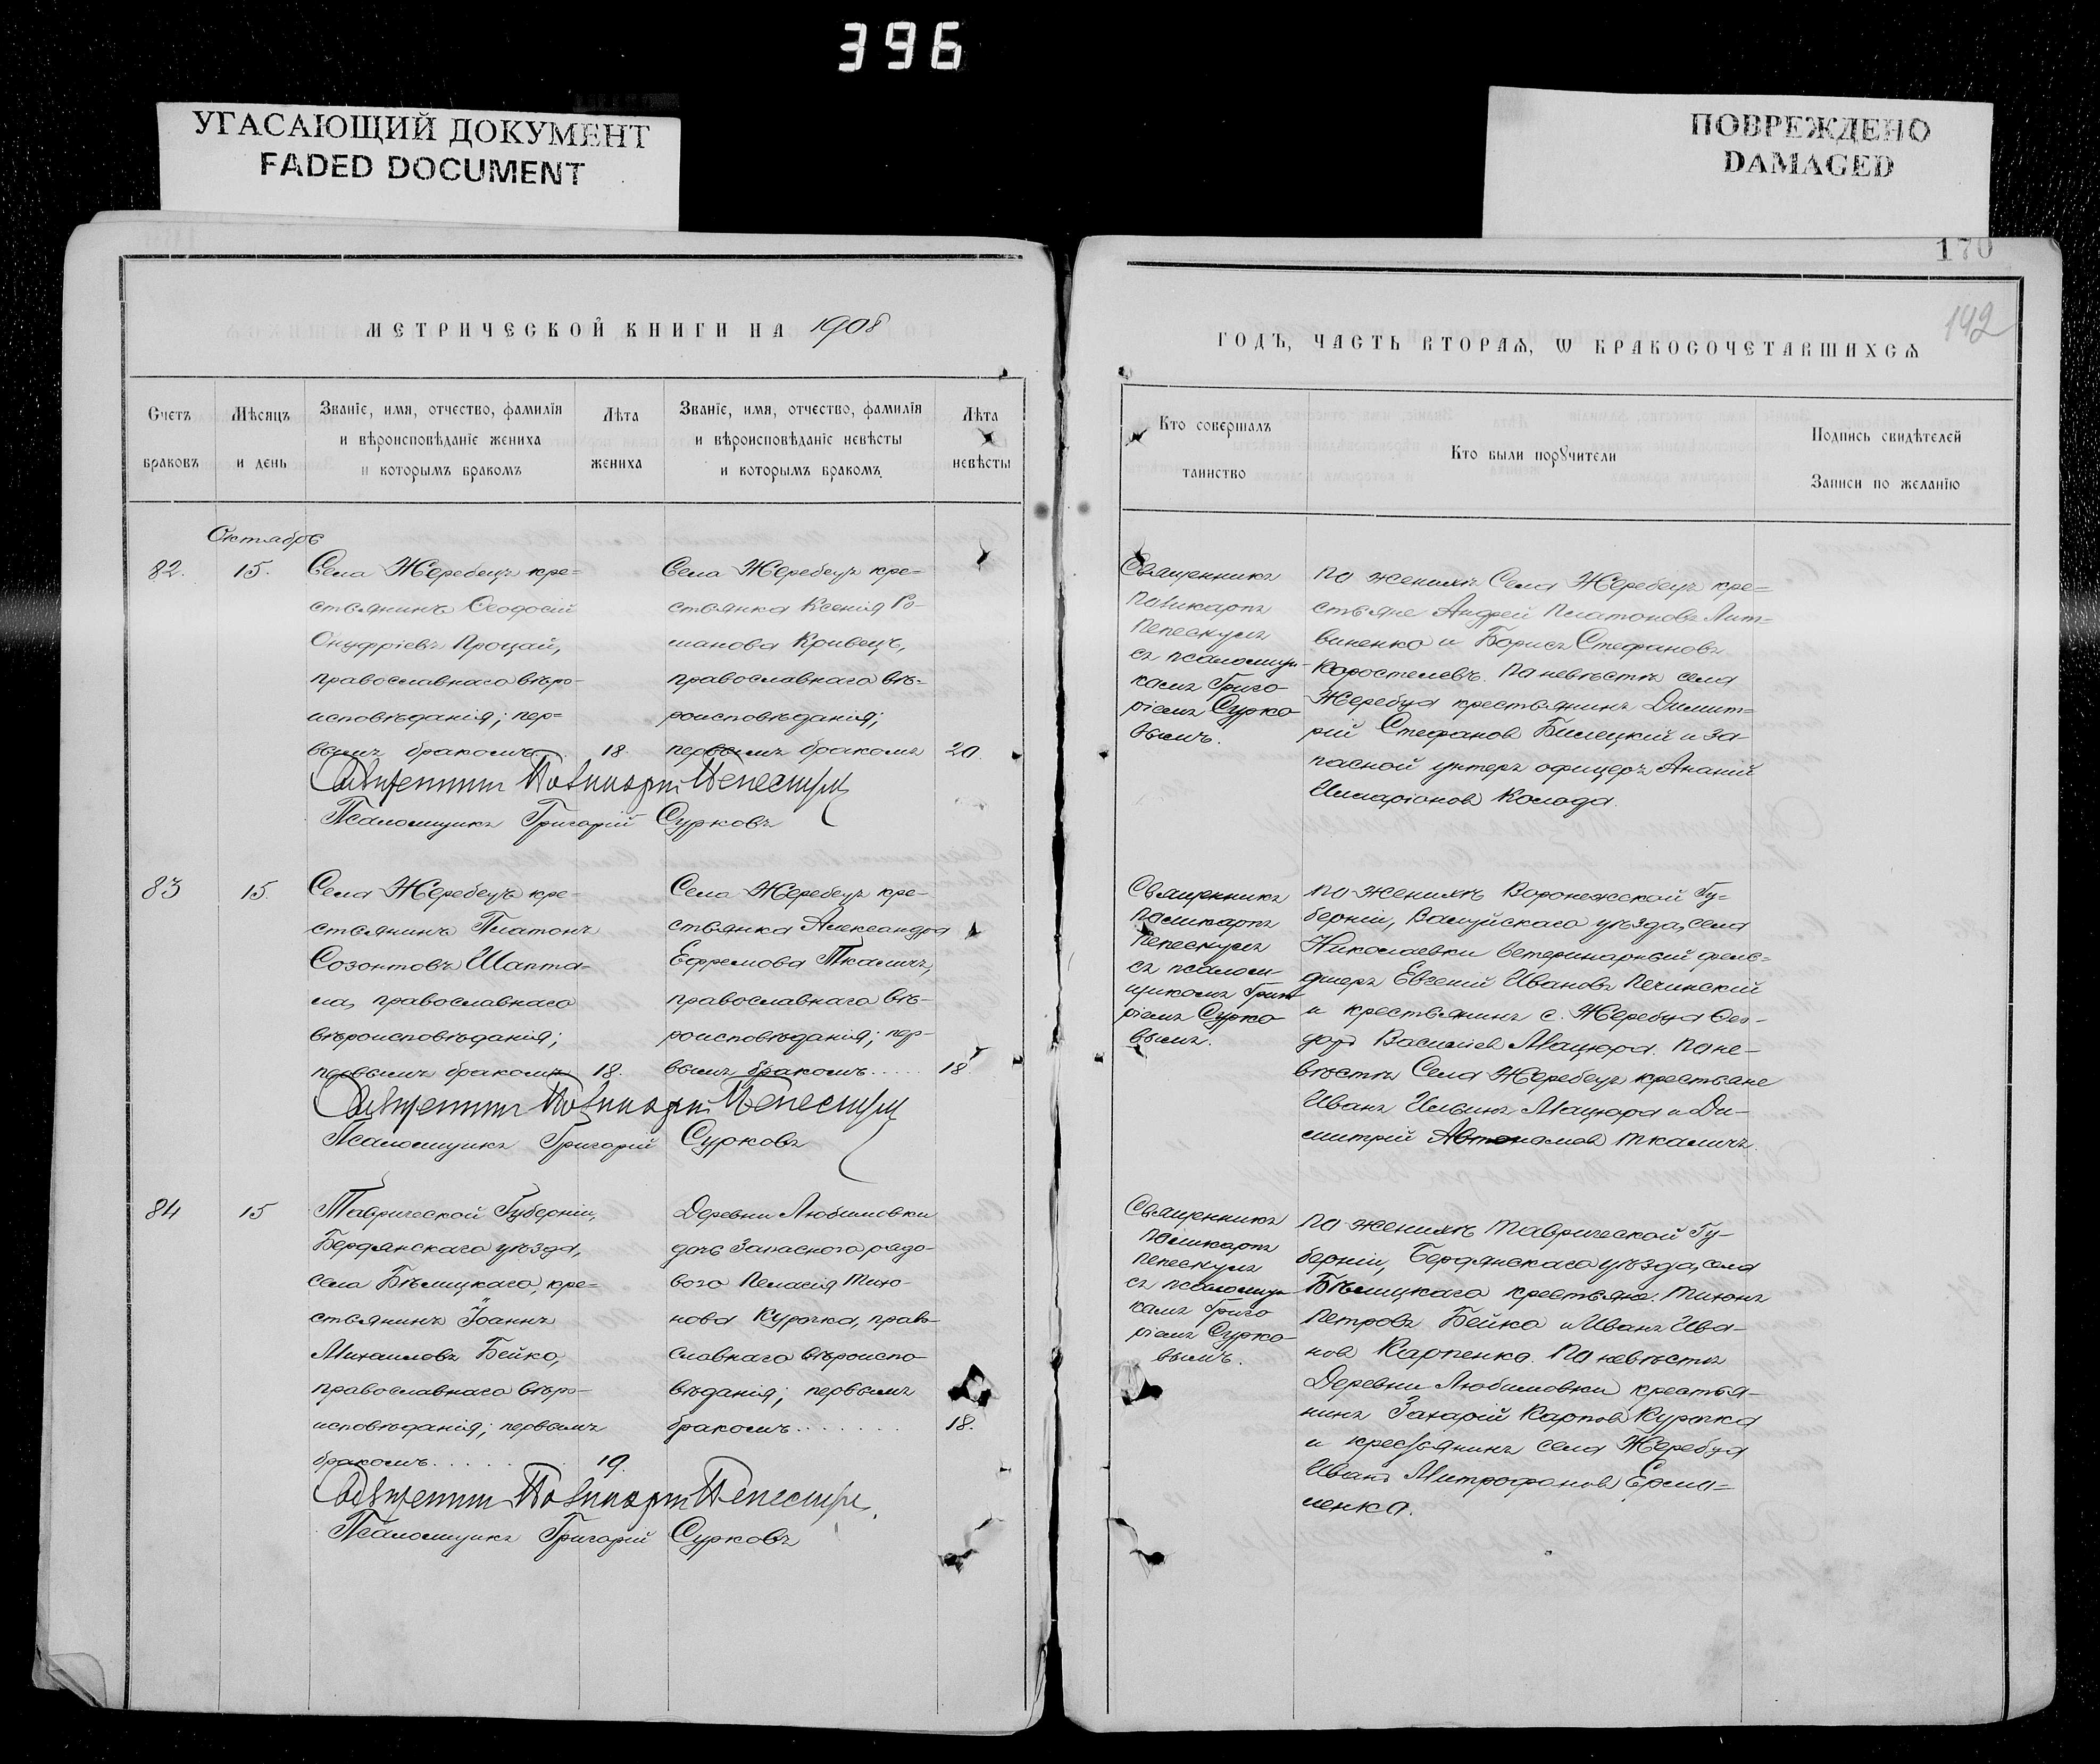 396
УГАСАЮЩИЙ ДОКУМЕНТ
FADED DOCUMENT
ПОВРЕЖДЕНО
DAMAGED
170
142
МЕТРИЧЕСКОЙ КНИГИ НА 1908
Счетъ
браковъ
Мѣсяцъ
и день
Званіе, имя, отчество, фамилія
и вѣроисповѣданіе жениха
и которымъ бракомъ
Лѣта
жениха
Званіе, имя, отчество, фамилія
и вѣроисповѣданіе невѣсты
и которымъ бракомъ
Лѣта
невѣсты
Октябрь
82.
15.
Села Жеребецъ кре=
стьянинъ Ѳеодосій
Онуфріевъ Процай,
православнаго вѣро-
исповѣданія; пер=
вымъ бракомъ 18.
Села Жеребецъ кре=
стьянка Ксенія Ро-
манова Кривецъ,
православнаго вѣ-
роисповѣданія;
первымъ бракомъ 20.
Священникъ Поликарпъ Пепескулъ
Псаломщикъ Григорій Сурковъ
83
15.
Села Жеребецъ кре-
стьянинъ Платонъ
Созонтовъ Шапта-
ла, православнаго
вѣроисповѣданія;
первымъ бракомъ 18.
Села Жеребецъ кре-
стьянка Александра
Ефремова Ткаличъ,
православнаго вѣ-
роисповѣданія; пер-
вымъ бракомъ..... 18
Священникъ Поликарпъ Пепескулъ
Псаломщикъ Григорій Сурковъ
84
15
Таврической Губерніи,
Бердянскаго уѣзда,
села Бѣлицкаго, кре=
стьянинъ Іоаннъ
Михаиловъ Бейко,
православнаго вѣро-
исповѣданія; первымъ
бракомъ...... 19.
Деревни Любимовки
дочь Запасного рядо-
вого Пелагія Тихо-
нова Курочка, право-
славнаго вѣроиспо-
вѣданія; первымъ
бракомъ....... 18.
Священникъ Поликарпъ Пепескулъ
Псаломщикъ Григорій Сурковъ
ГОДЪ, ЧАСТЬ ВТОРАѦ, Ѡ БРАКОСОЧЕТАВШИХСѦ
Кто совершалъ
таинство
Кто были порꙋчители
Подпись свидѣтелей
Записи по желанію
Священникъ
Поликарпъ
Пепескулъ
съ псаломщи-
комъ Григо-
ріемъ Сурко-
вымъ.
По женихѣ Села Жеребецъ кре=
стьяне Андрей Платоновъ Лит=
виненко и Борисъ Стефановъ
Коростелевъ. По невѣстѣ села
Жеребца крестьянинъ Димит=
рій Стефанов Билецкій и за-
пасной унтеръ офицеръ Ананій
Иларіонов Колода.
Священникъ
Поликарпъ
Пепескулъ
съ псалом-
щикомъ Григо-
ріемъ Сурко-
вымъ.
По женихѣ Воронежской Гу=
берніи, Валуйскаго уѣзда, села
Николаевки ветеринарный фель=
дшеръ Евгеній Ивановъ Печинскій
и крестьянинъ с. Жеребца Ѳео-
доръ Васильев Мацюра. По не-
вѣстѣ Села Жеребецъ крестьяне
Иванъ Ильинъ Мацюра и Ди-
митрій Автономов Ткаличъ.
Священникъ
Поликарпъ
Пепескулъ
съ псаломщи-
комъ Григо
ріемъ Сурко-
вымъ.
По женихѣ Таврической Гу-
берніи, Бердянскаго уѣзда, села
Бѣлицкаго крестьяне. Тихонъ
Петровъ Бейко и Иванъ Ива-
нов Карпенко. По невѣстѣ
Деревни Любимовки крестья-
нинъ Захарій Карпов Курочка
и крестьянинъ села Жеребца
Иванъ Митрофанов Ерма=
ленко.